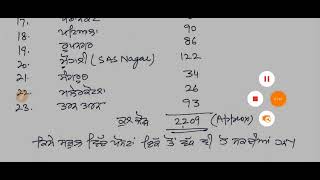 17.
18. ਪਟਿਆਲਾ 90
19. ਰੂਪਨਗਰ 86
20. ਮੋਹਾਲੀ (SAS Nagar) 122
21. ਸੰਗਰੂਰ 34
22. ਮਲੇਰਕੋਟਲਾ 26
23. ਤਰਨ ਤਾਰਨ 93
ਕੁਲ ਜੋੜ 2209 (Approx)
ਕਿਸੇ ਸਕੂਲ ਵਿੱਚ ਪੋਸਟਾਂ ਇੱਕ ਤੋਂ ਵੱਧ ਵੀ ਹੋ ਸਕਦੀਆਂ ਹਨ।